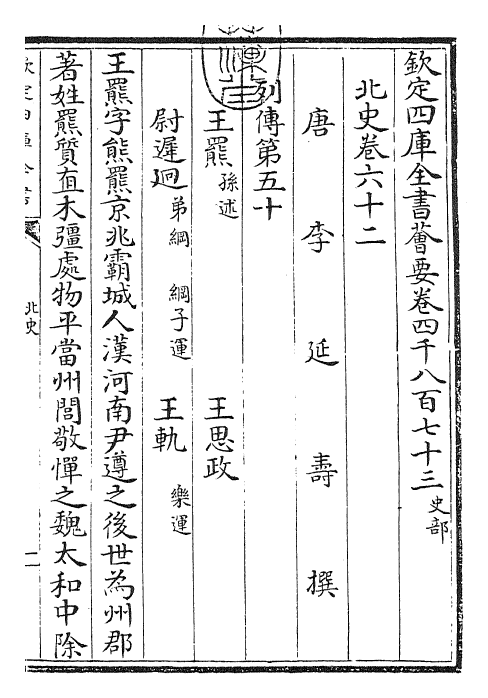 欽定四庫全書薈要卷四千八百七十三 史部
北史卷六十二
唐 李 延 壽 撰
列傳第五十
王羆 孫述 王思政
尉遲迥 弟綱 綱子運 王軌 樂運
王羆字熊羆京兆霸城人漢河南尹遵之後世為州郡
著姓羆質直木彊處物平當州閭敬憚之魏太和中除
欽定四庫全書
北史